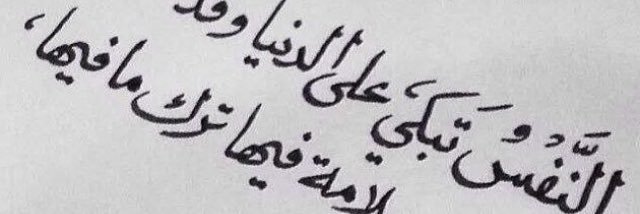 النَّفْسُ تَبكي على الدنيا وقد
لامة فيها ترك ما فيها،